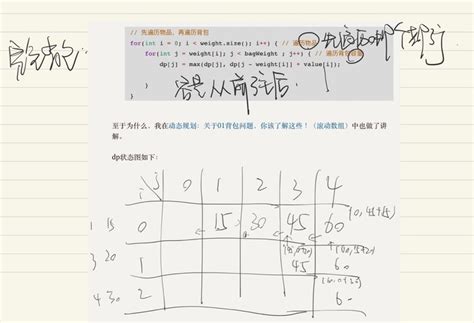 完全背包
// 先遍历物品，再遍历背包
for(int i = 0; i < weight.size(); i++) { // 遍历物品
for(int j = weight[i]; j < bagWeight ; j++) { // 遍历背包容量
dp[j] = max(dp[j], dp[j - weight[i]] + value[i]);
}
}
先遍历哪个都行
容量从前往后.
至于为什么，我在动态规划：关于01背包问题，你该了解这些！（滚动数组）中也做了讲解。
dp状态图如下：
i j 0 1 2 3 4
1 15 0 15 30 45 60 (0, 45+15)
3 20 1 45 60
4 30 2 60